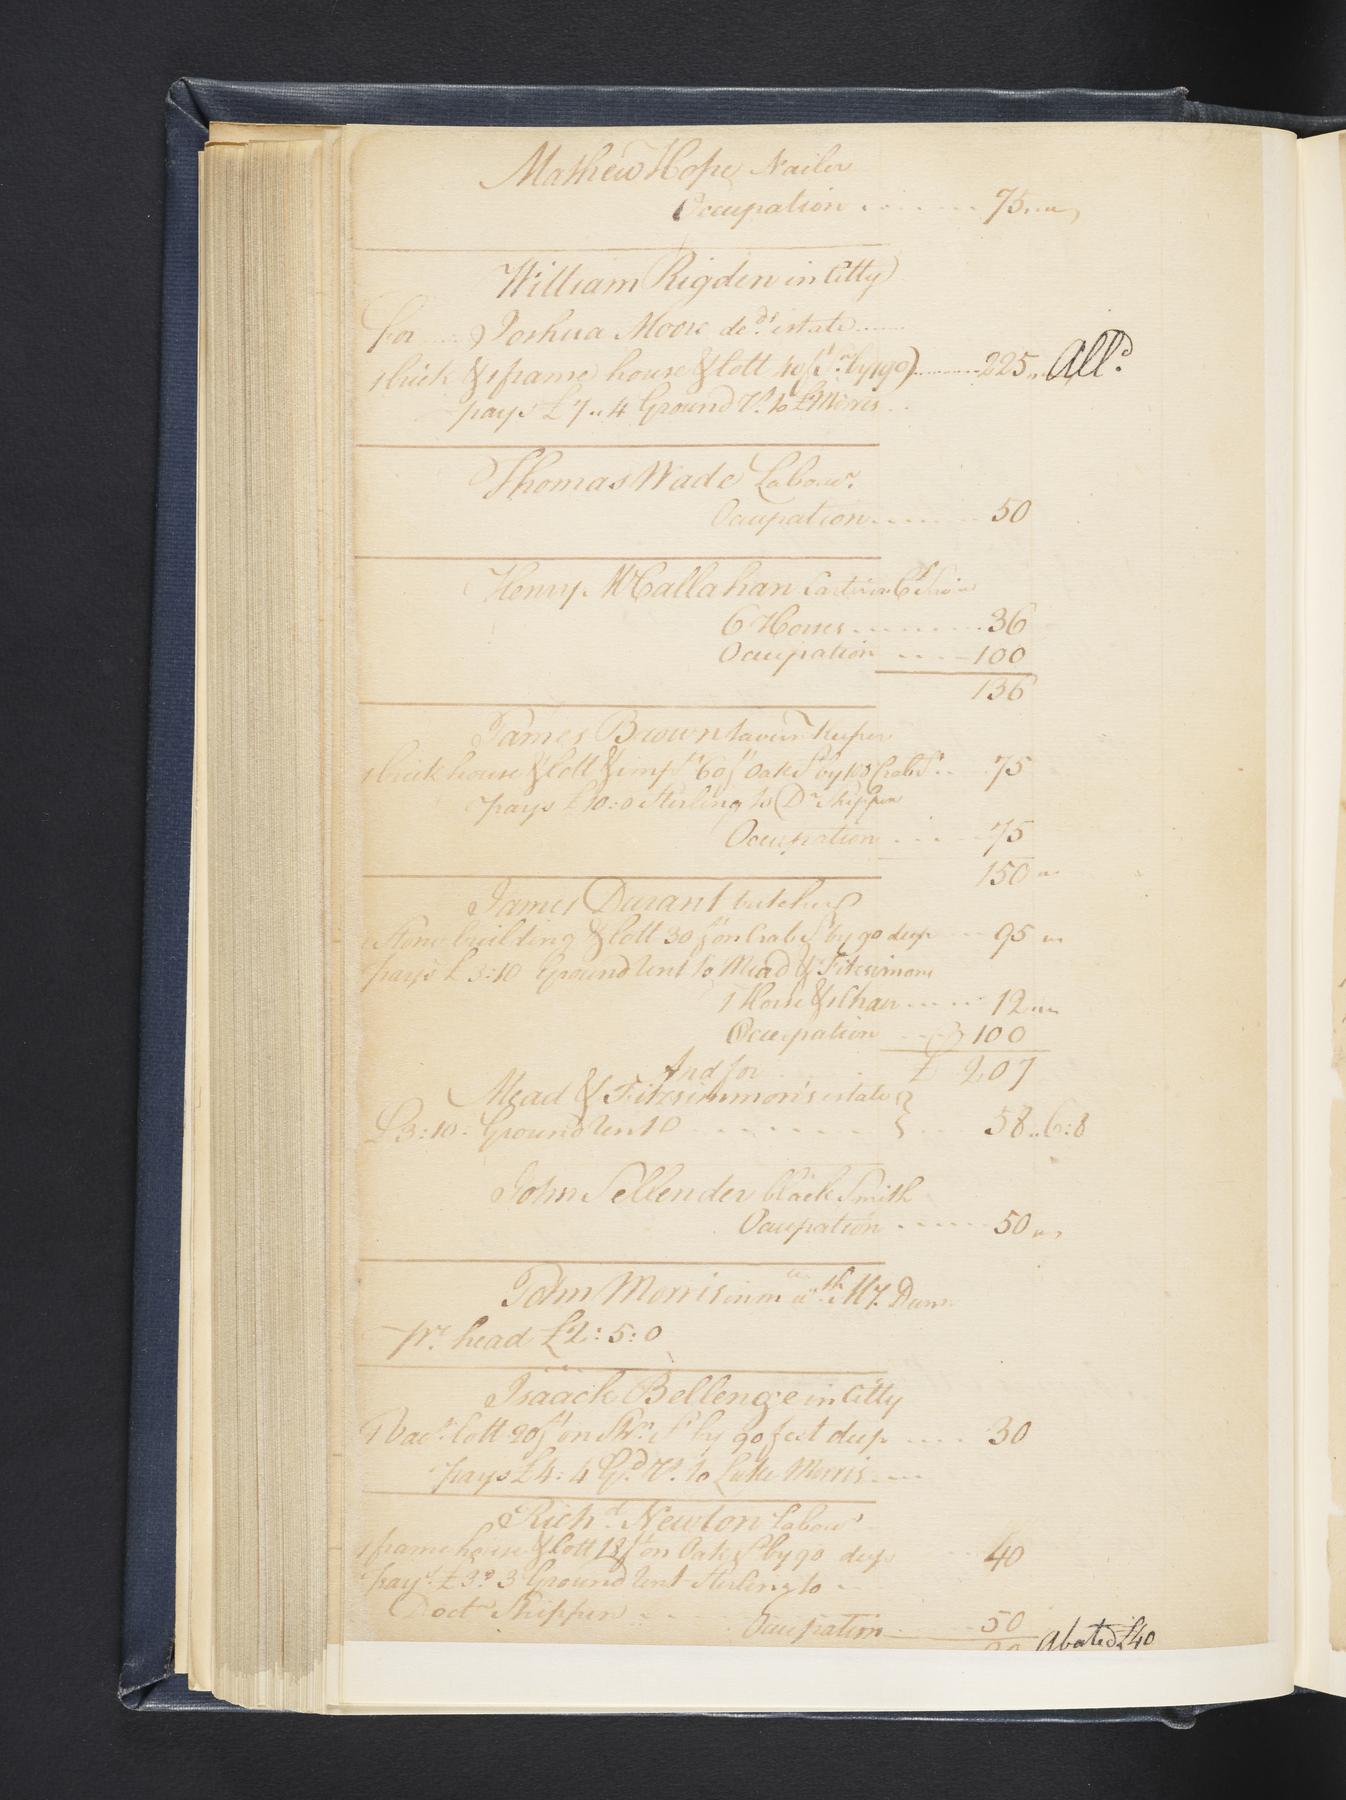 Mathew Hope Nailer
Occupation ........ 75
William Rigden in Citty
for Joshua Moore decd's estate
1 brick & 1 frame house & lott 40 f by 90) ........ 225 All.d
pays £7..4 Ground Rt to L Morris
Thomas Wade Labour.r
Occupation ........ 50
Henry McCallahan
6 Horses ........ 36
Occupation .... 100
136
James Brown tavern keeper
1 brick house & lott & imp.ts 60 f.t Oak St by 108 Crab St .. 75
pays £10:0 Sterling to Dr Shippen
Occupation .... 75
150
James Durant butcher
Stone building & lott 30 f.t on Crab St by 90 deep .... 95
pays £3:10 Ground Rent to Mead & Fitzsimons
1 Horse & chair .... 12
Occupation .... 100
£ 207
And for
Mead & Fitzsimmon's estate
£3:10. Ground Rent ........ 58..6:8
John Sellender black Smith
Occupation ........ 50
John Morris Dunn
pr. head £2:5:0
Isaack Bellenge in Citty
1 Vac.t lott 20 f.t on St by 90 feet deep .... 30
pays £4:4 G.d R.t to Luke Morris
Rich.d Newton Labour.r
1 frame house & lott 18 f.t on Oak St by 90 deep 40
pays £3:3 Ground Rent Sterling to
Doct.r Shippen
Occupation .... 50
90 Abated £40